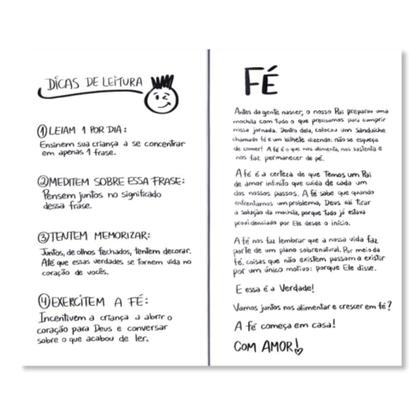 DICAS DE LEITURA
1 LEIAM 1 POR DIA:
Ensinem sua criança a se concentrar
em apenas 1 frase.
2 MEDITEM SOBRE ESSA FRASE:
Pensem juntos no significado
dessa frase.
3 TENTEM MEMORIZAR:
Juntos, de olhos fechados, tentem decorar.
Até que essas verdades se tornem vida no
coração de vocês.
4 EXERCITEM A FÉ:
Incentivem a criança a abrir o
coração para Deus e conversar
sobre o que acabou de ler.
FÉ
Antes da gente nascer, o nosso Pai preparou uma
mochila com tudo o que precisamos para cumprir
nossa jornada. Dentro dela, colocou um sanduíche
chamado fé e um bilhete dizendo: não se esqueça
de comer! A fé é o que nos alimenta, nos sustenta e
nos faz permanecer de pé.
A fé é a certeza de que temos um Pai
de amor infinito que cuida de cada um
dos nossos passos. A fé sabe que quando
enfrentamos um problema, Deus vai tirar
a solução da mochila, porque tudo já estava
providenciado por Ele desde o início.
A fé nos faz lembrar que a nossa vida faz
parte de um plano sobrenatural. Por meio da
fé, coisas que não existem passam a existir
por um único motivo: porque Ele disse.
E essa é a Verdade!
Vamos juntos nos alimentar e crescer em fé?
A fé começa em casa!
COM AMOR!